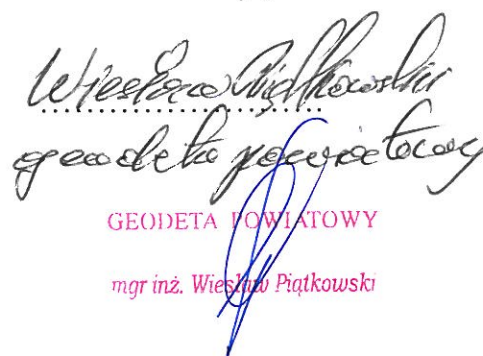 Wiesław Piątkowski
geodeta powiatowy
GEODETA POWIATOWY
mgr inż. Wiesław Piątkowski